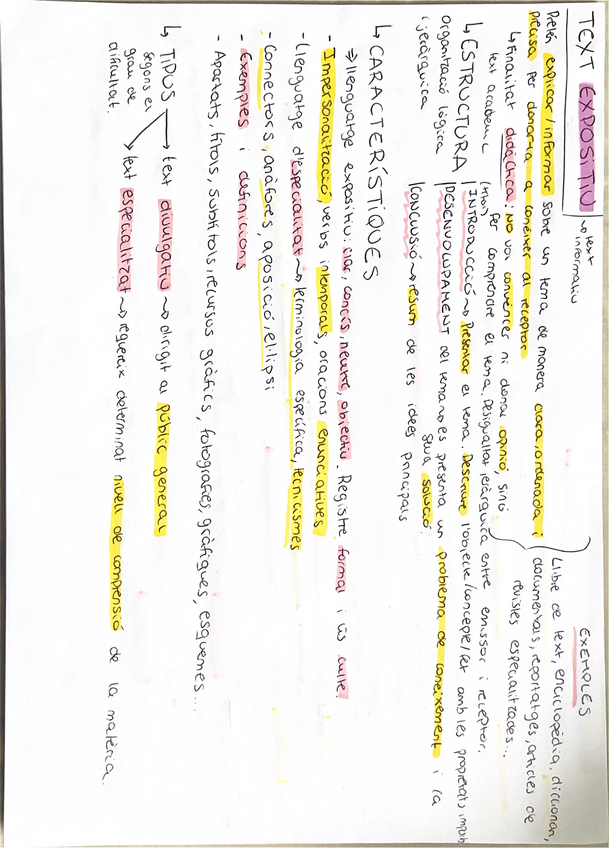 TEXT EXPOSITIU
↳ text informatiu
Pretén explicar/informar sobre un tema de manera clara, ordenada i
precisa per donar-la a conèixer al receptor
↳ Finalitat didàctica: NO vol convèncer ni donar opinió, sinó
per comprendre el tema. Desigualtat jeràrquica entre emissor i receptor.
text acadèmic
EXEMPLES
Llibre de text, enciclopèdia, diccionari,
documentals, reportatges, articles de
revistes especialitzades...
↳ ESTRUCTURA
Organització lògica
i jeràrquica
(títol)
INTRODUCCIÓ → Presentar el tema. Descriure l'objecte/concepte/fet amb les propietats
DESENVOLUPAMENT del tema → es presenta un problema de coneixement i la
seva solució
CONCLUSIÓ → resum de les idees principals
↳ CARACTERÍSTIQUES
⇒ llenguatge expositiu: clar, concís, neutre, objectiu. Registre formal i ús culte.
- Impersonalització, verbs intemporals, oracions enunciatives
- Llenguatge d'especialitat → terminologia específica, tecnicismes
- Connectors, anàfores, aposició, el·lipsi
- Exemples i definicions
- Apartats, títols, subtítols, recursos gràfics, fotografies, gràfiques, esquemes...
↳ TIPUS
segons el
grau de
dificultat.
→ text divulgatiu → dirigit al públic general
→ text especialitzat → requereix determinat nivell de comprensió de la matèria.